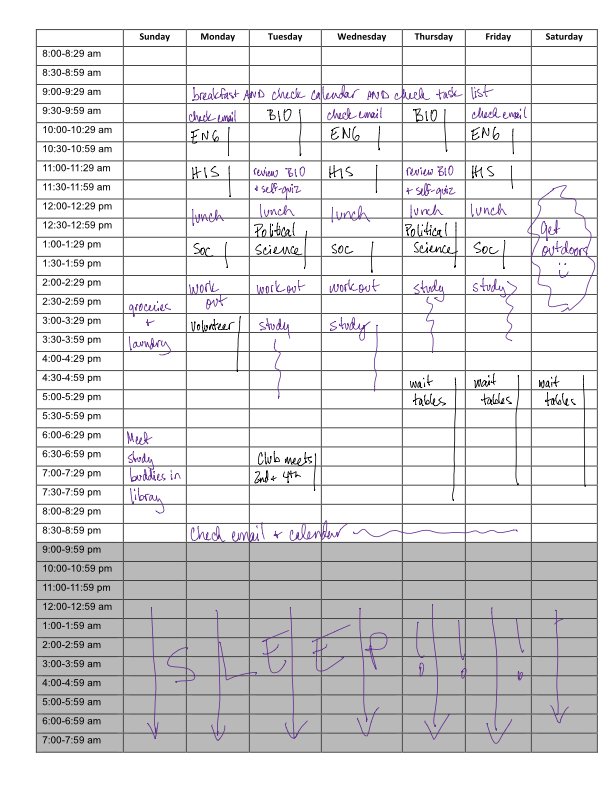 Sunday Monday Tuesday Wednesday Thursday Friday Saturday
8:00-8:29 am
8:30-8:59 am
9:00-9:29 am breakfast AND check calendar AND check task list
9:30-9:59 am check email BIO check email BIO check email
10:00-10:29 am ENG ENG ENG
10:30-10:59 am
11:00-11:29 am HIS review BIO HIS review BIO HIS
11:30-11:59 am + self-quiz + self-quiz
12:00-12:29 pm lunch lunch lunch lunch lunch
12:30-12:59 pm Political Political Get
1:00-1:29 pm Soc Science SOC Science Soc outdoors
1:30-1:59 pm
2:00-2:29 pm work workout workout study study
2:30-2:59 pm groceries out
3:00-3:29 pm + volunteer study study
3:30-3:59 pm laundry
4:00-4:29 pm
4:30-4:59 pm wait wait wait
5:00-5:29 pm tables tables tables
5:30-5:59 pm
6:00-6:29 pm Meet
6:30-6:59 pm study Club meets
7:00-7:29 pm buddies in 2nd + 4th
7:30-7:59 pm libray
8:00-8:29 pm
8:30-8:59 pm Check email + calendar
9:00-9:59 pm
10:00-10:59 pm
11:00-11:59 pm
12:00-12:59 am
1:00-1:59 am
2:00-2:59 am SLEEP!!!
3:00-3:59 am
4:00-4:59 am
5:00-5:59 am
6:00-6:59 am
7:00-7:59 am